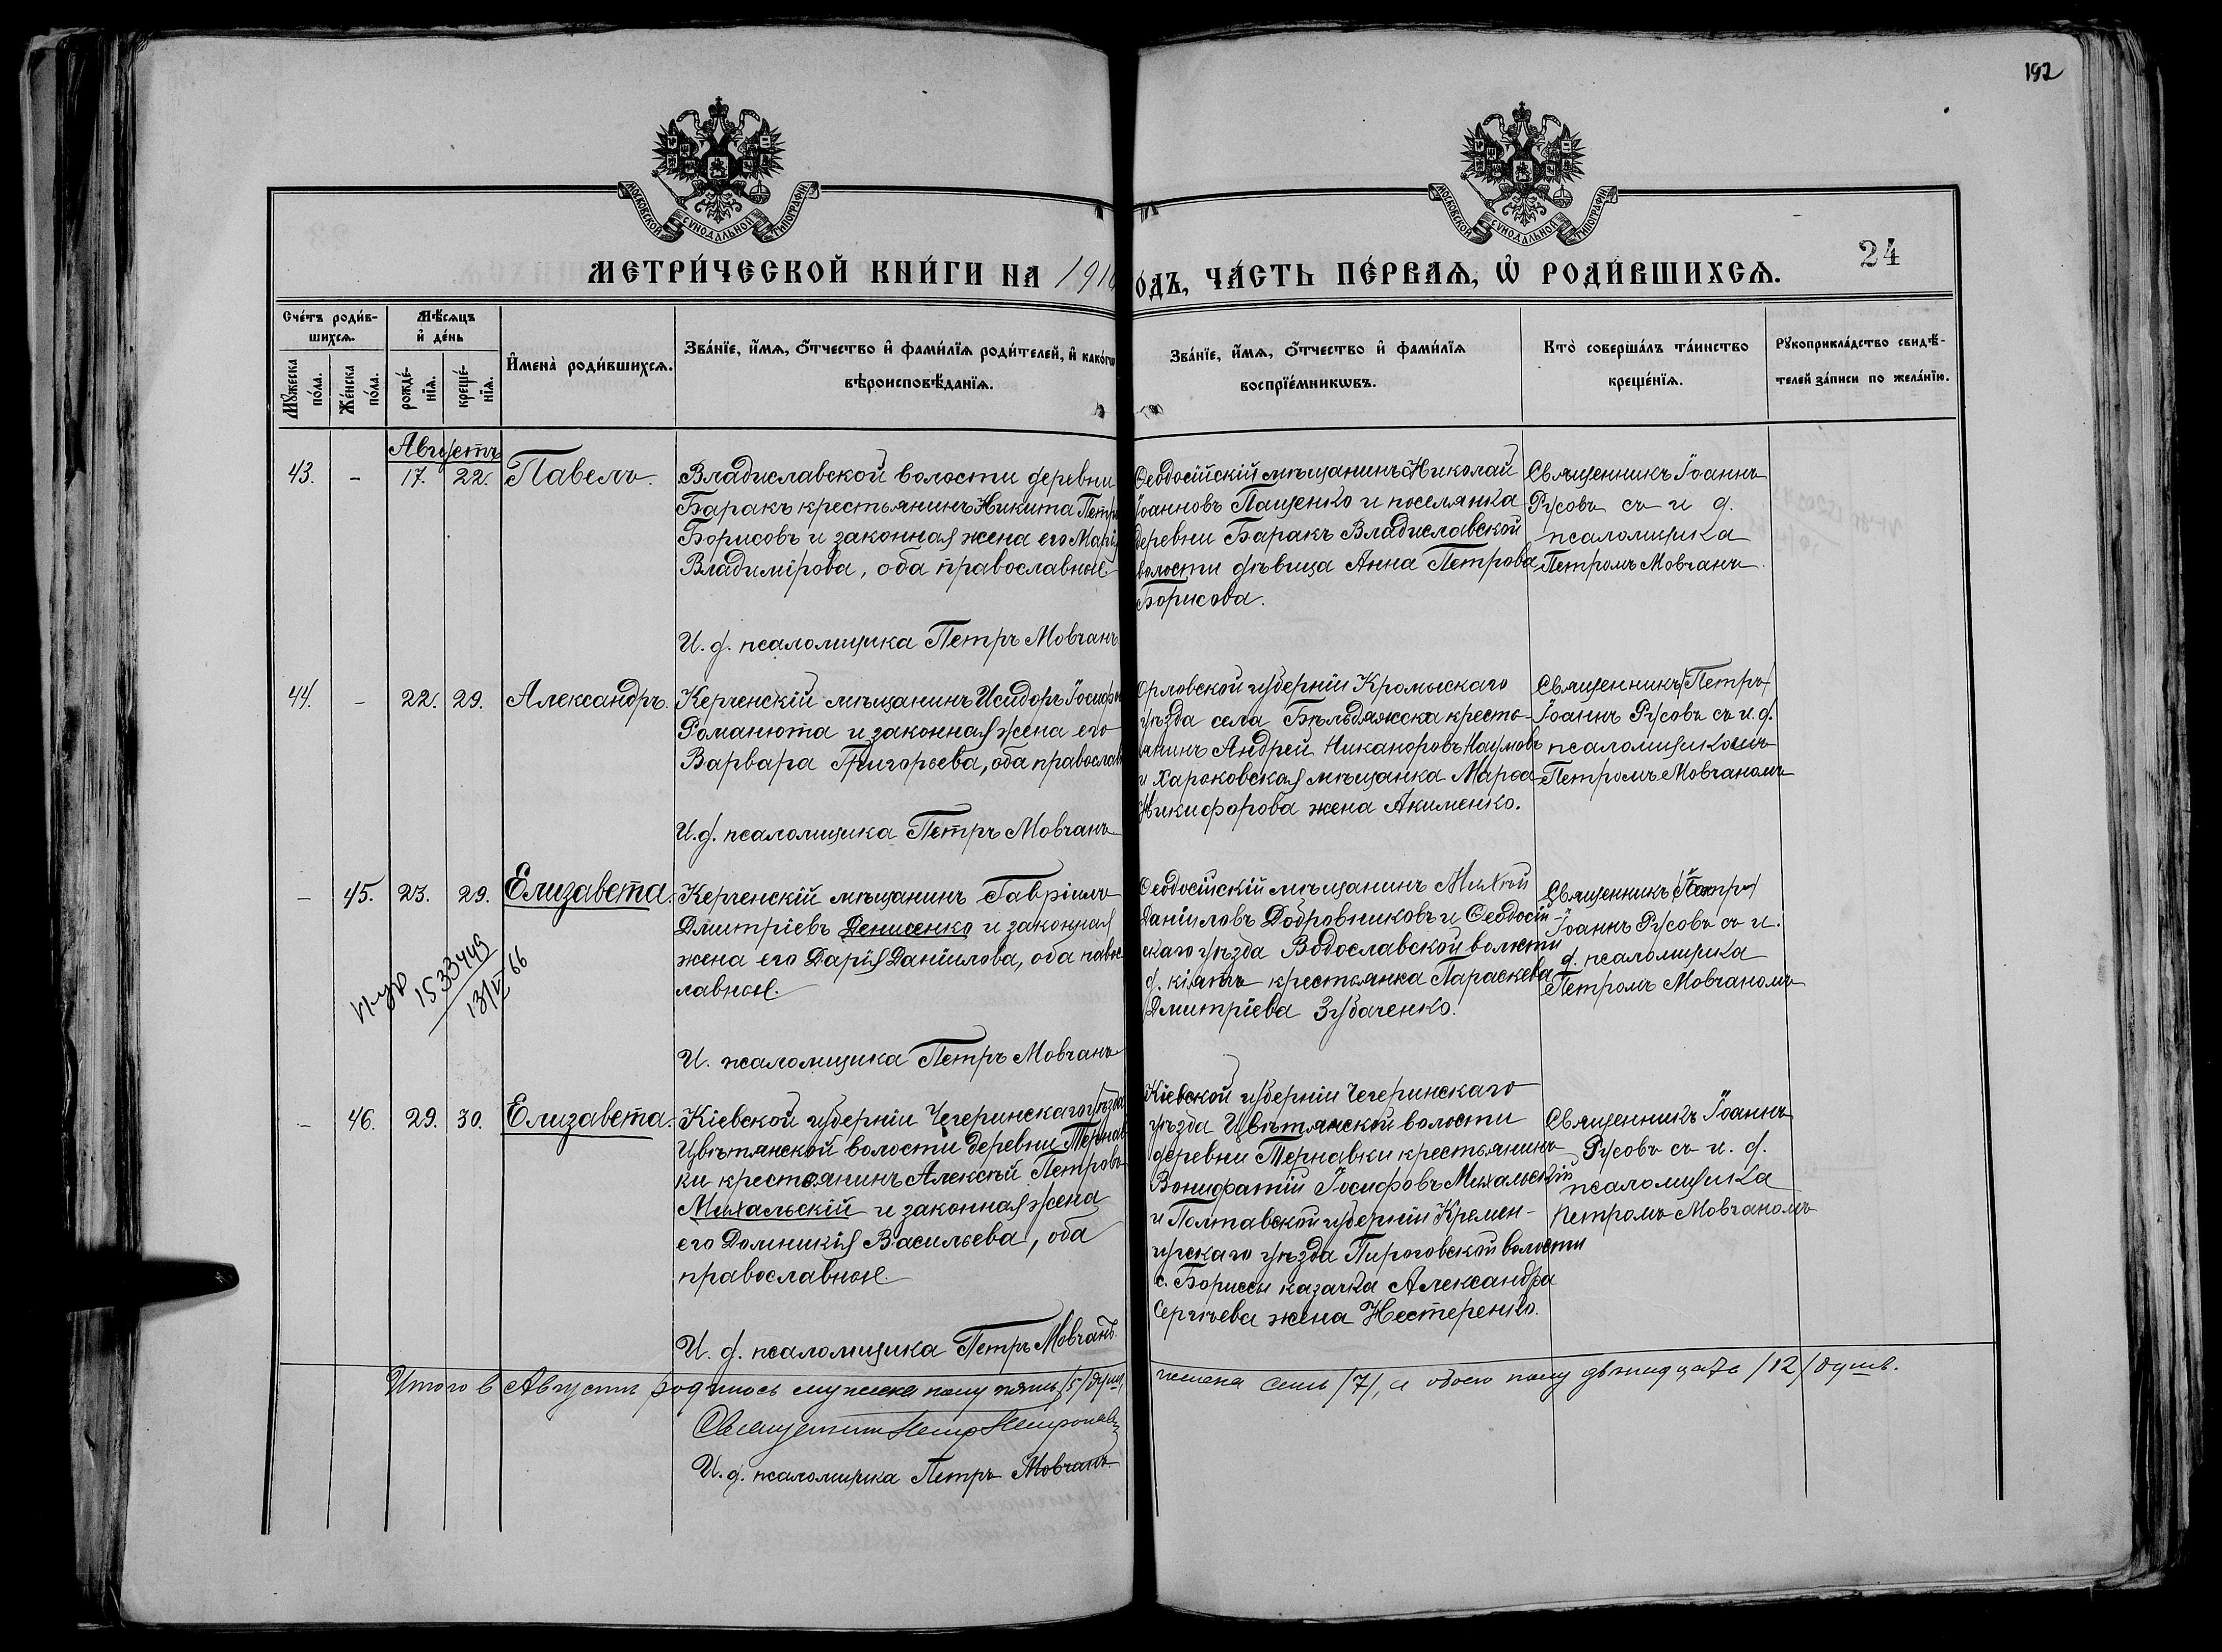 192
МОСКОВСКОЙ СѴНОДАЛЬНОЙ ТИПОГРАФІИ
МОСКОВСКОЙ СѴНОДАЛЬНОЙ ТИПОГРАФІИ
24
МЕТРИ́ЧЕСКОЙ КНИ́ГИ НА 191
ОДЪ, ЧА́СТЬ ПЕ́РВАѦ, Ѡ҆ РОДИ́ВШИХСѦ.
Сче́тъ роди́в-
шихсѧ.
Мꙋжеска по́ла.
Же́нска по́ла.
Мѣ́сѧцъ
и҆ де́нь
рожде́-
нїѧ.
креще́-
нїѧ.
И҆мена̀ роди́вшихсѧ.
Зва́нїе, и҆́мѧ, ѻ҆́тчество и҆ фами́лїѧ роди́телей, и҆ како́гѡ
вѣроисповѣ́данїѧ.
Зва́нїе, и҆́мѧ, ѻ҆́тчество и҆ фами́лїѧ
воспрїе́мникѡвъ.
Кто̀ соверша́лъ та́инство
креще́нїѧ.
Рꙋкоприкла́дство свидѣ́-
телей за́писи по жела́нїю.
Августъ
43. - 17. 22. Павелъ.
Владиславской волости деревни
Баракъ крестьянинъ Никита Петр
Борисовъ и законная жена его Марія
Владимірова, оба православные
И. д. псаломщика Петръ Мовчанъ
Ѳеодосійскій мѣщанинъ Николай
Іоанновъ Пащенко и поселянка
деревни Баракъ Владиславской
волости дѣвица Анна Петрова
Борисова.
Священникъ Іоаннъ
Русовъ съ и д.
псаломщика
Петромъ Мовчанъ
44. - 22. 29. Александръ.
Керченскій мѣщанинъ Исидоръ Іосифо
Романюта и законная жена его
Варвара Григорьева, оба православ
И. д. псаломщика Петръ Мовчанъ
Орловской губерніи Кромыскаго
уѣзда села Бѣльдяжска кресть-
янинъ Андрей Никаноровъ Наумовъ
и Харьковская мѣщанка Марѳа
Никифорова жена Акименко.
Священникъ /Петръ/
Іоаннъ Русовъ съ и. д.
псаломщикомъ
Петромъ Мовчаномъ
- 45. 23. 29. Елизавета.
Керченскій мѣщанинъ Гавріилъ
Дмитріевъ Денисенко и законная
жена его Дарія Даніилова, оба павос
лавные.
И. псаломщика Петръ Мовчанъ
1533449
13/V 66
Ѳеодосійскій мѣщанинъ
Даніиловъ Добровниковъ и Ѳеодосій-
скаго уѣзда Водославской волости
д. кіятъ крестьянка Параскева
Дмитріева Зубаченко.
Священникъ
Іоаннъ Русовъ съ и.
д. псаломщика
Петромъ Мовчаномъ
- 46. 29. 30. Елизавета.
Кіевской губерніи Чегеринскаго уѣзда
Цвѣтянской волости деревни Тернав
ки крестьянинъ Алексѣй Петровъ
Михальскій и законная жена
его Домникія Васильева, оба
православные.
И. д. псаломщика Петръ Мовчанъ.
Кіевской губерніи Чегеринскаго
уѣзда Цвѣтянской волости
деревни Тернавки крестьянинъ
Вонифатій Іосифовъ Михальскій
и Полтавской губерніи Кремен-
чугскаго уѣзда Пироговской волости
с. Бориссы казачка Александра
Сергѣева жена Нестеренко.
Священникъ Іоаннъ
Русовъ съ и. д.
псаломщика
Петромъ Мовчаномъ
Итого в Августѣ родилось мужска полу пять /5/ душъ,
женска семь /7/, а обоего полу двѣнадцать /12/ душъ.
Священникъ Петръ
И. д. псаломщика Петръ Мовчанъ